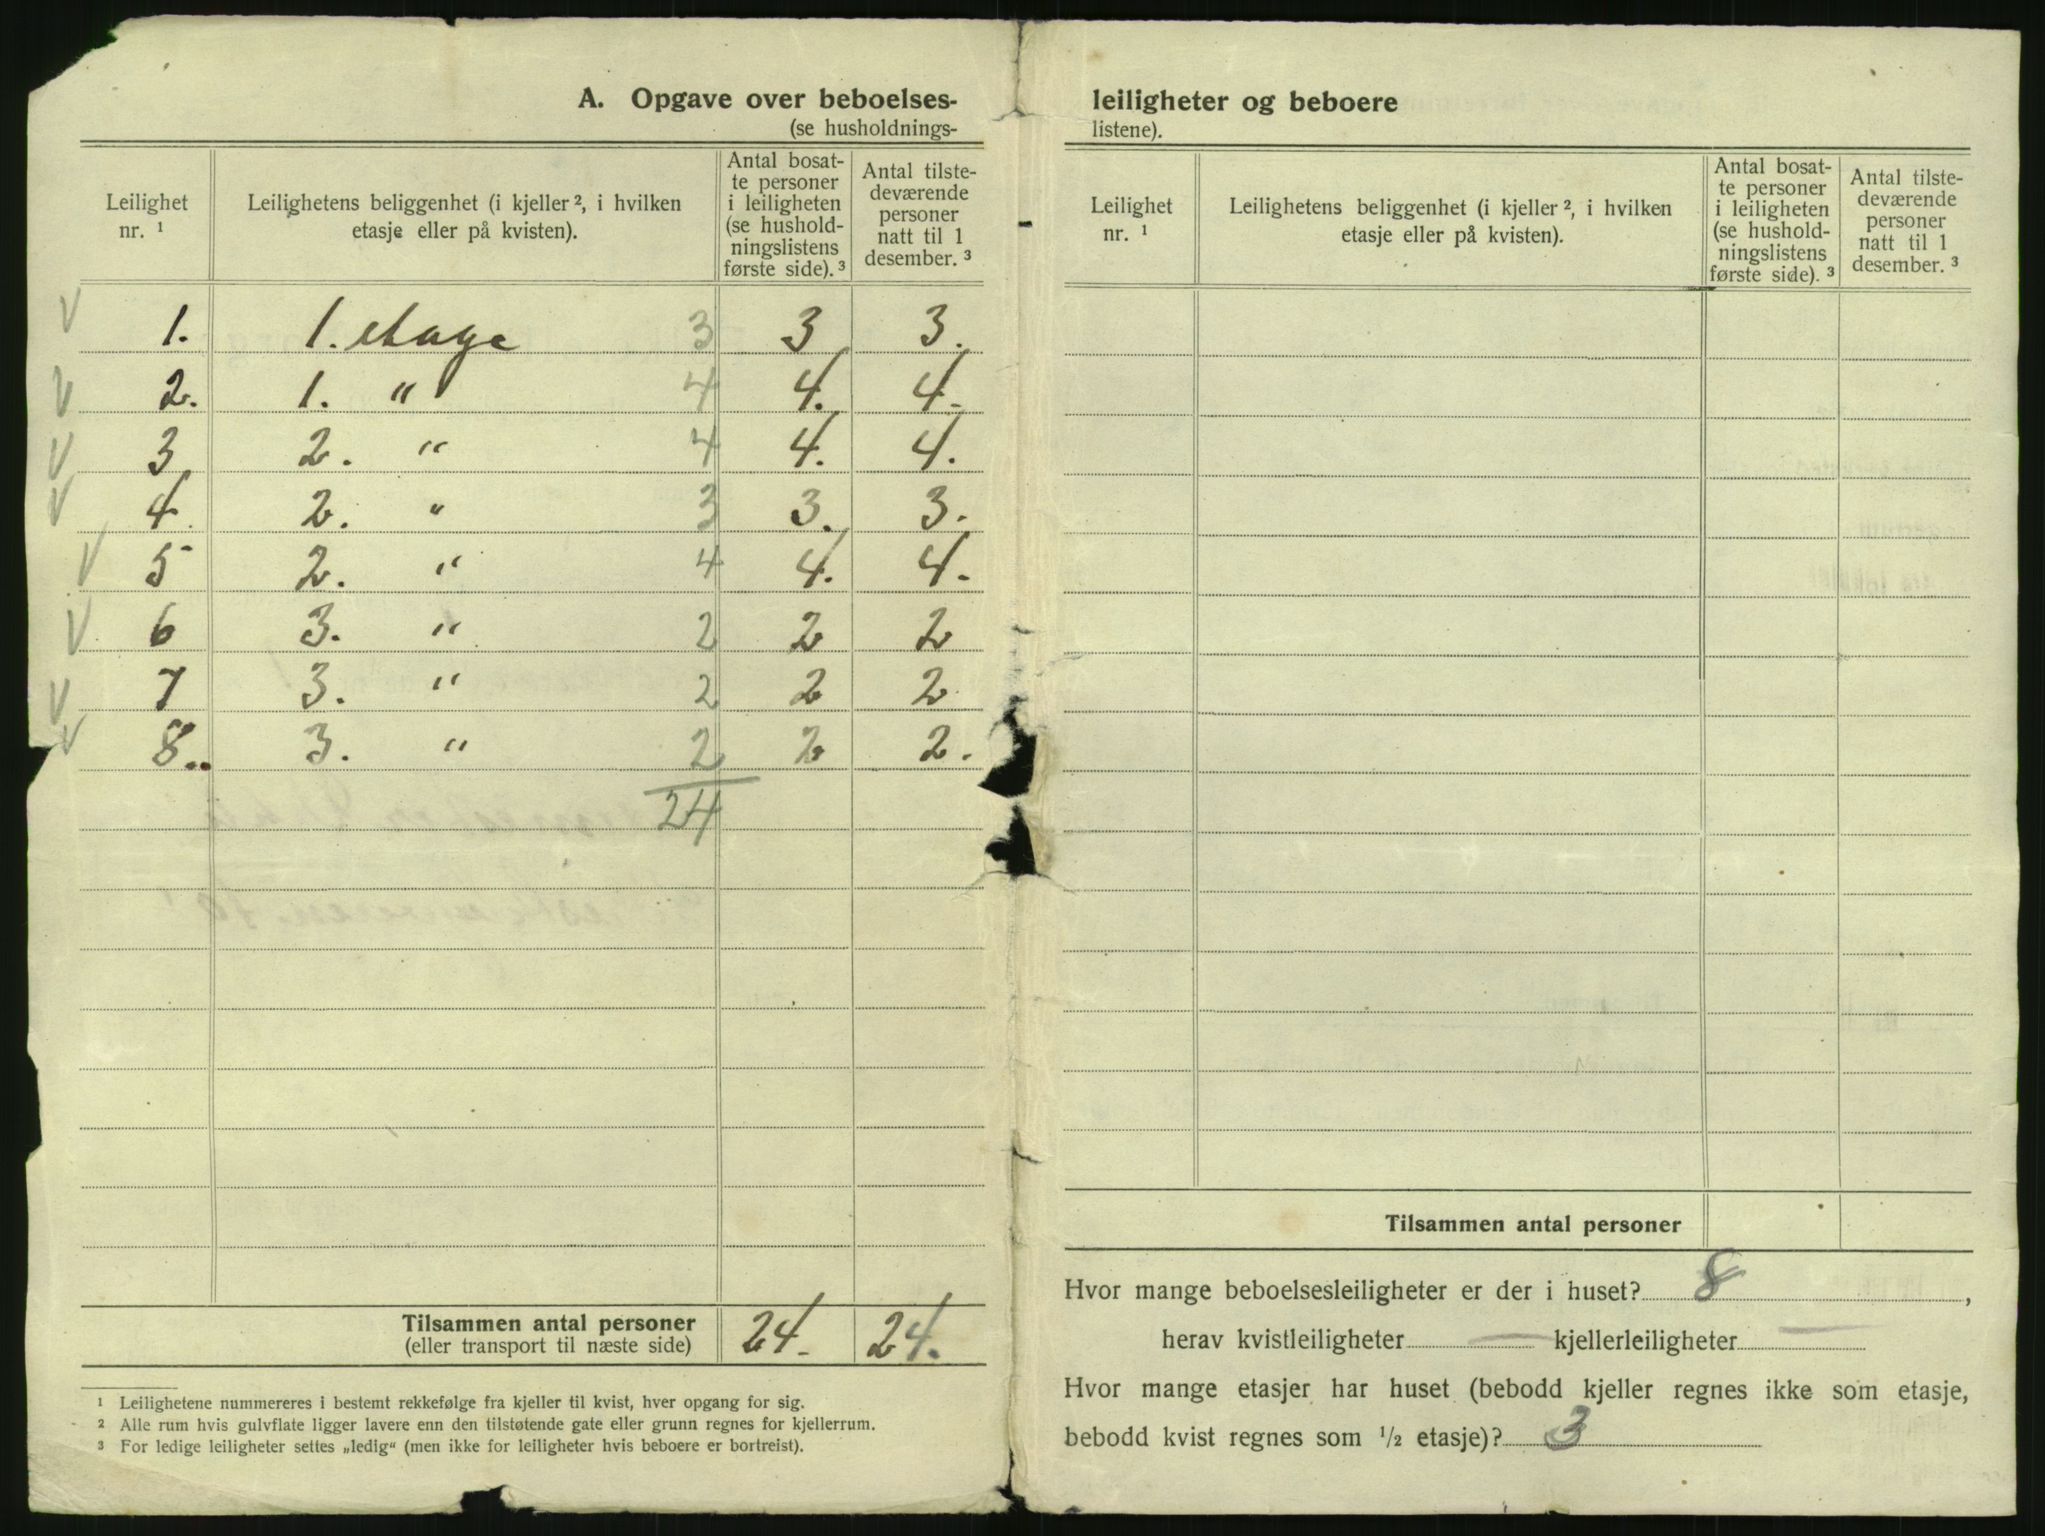 A. Opgave over beboelses-
(se husholdnings-
Leilighet nr. ¹
Leilighetens beliggenhet (i kjeller ², i hvilken etasje eller på kvisten).
Antal bosat-
te personer
i leiligheten
(se hushold-
ningslistens
første side). ³
Antal tilste-
deværende
personer
natt til 1
desember. ³
1. 1. etage 3 3 3.
2. 1. " 4 4. 4.
3 2. " 4 4. 4.
4 2. " 3 3. 3.
5 2. " 4 4. 4.
6 3. " 2 2 2
7 3. " 2 2 2
8.. 3. " 2 2 2.
24
Tilsammen antal personer
(eller transport til næste side)
24. 24.
¹ Leilighetene nummereres i bestemt rekkefølge fra kjeller til kvist, hver opgang for sig.
² Alle rum hvis gulvflate ligger lavere enn den tilstøtende gate eller grunn regnes for kjellerrum.
³ For ledige leiligheter settes „ledig“ (men ikke for leiligheter hvis beboere er bortreist).
leiligheter og beboere
listene).
Leilighet nr. ¹
Leilighetens beliggenhet (i kjeller ², i hvilken etasje eller på kvisten).
Antal bosat-
te personer
i leiligheten
(se hushold-
ningslistens
første side). ³
Antal tilste-
deværende
personer
natt til 1
desember. ³
Tilsammen antal personer
Hvor mange beboelsesleiligheter er der i huset? 8,
herav kvistleiligheter — kjellerleiligheter —
Hvor mange etasjer har huset (bebodd kjeller regnes ikke som etasje,
bebodd kvist regnes som ½ etasje)? 3